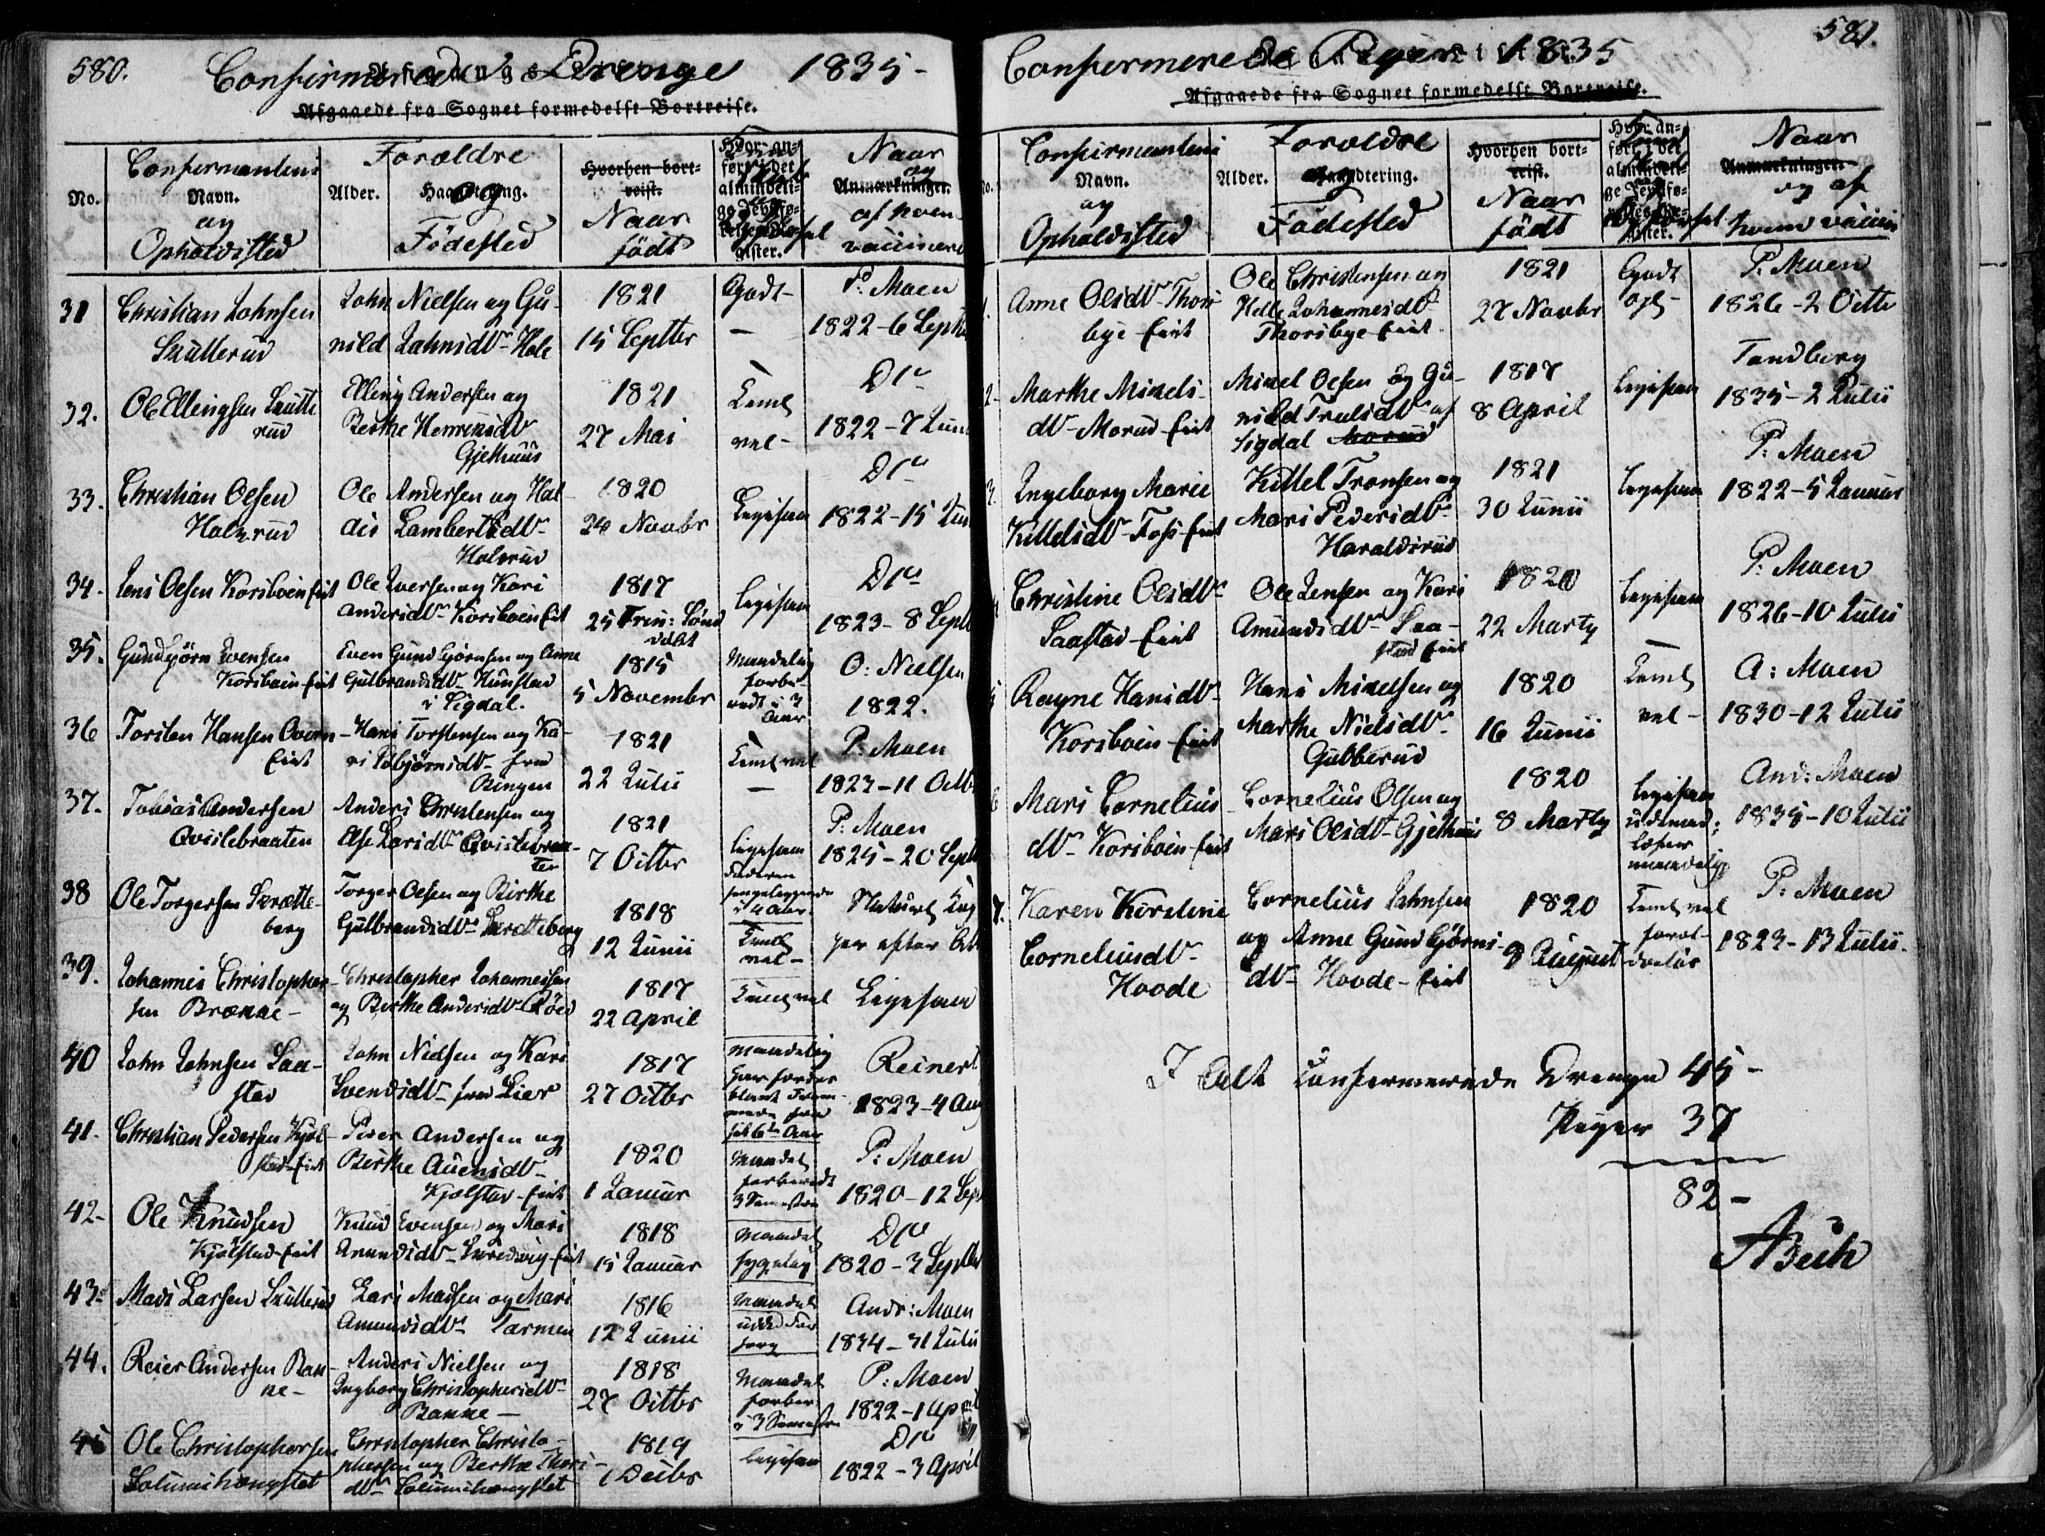 580.
Confirmerede Drenge 1835-
Afgaaede fra Sognet formedelst Bortreise.
No.
Confirmantens
Navn.
og
Opholdssted
Alder.
Forældre
og
Fødested
Hvorhen bort-
reist.
Naar
født
Naar
og
Anmærkninger.
af hvem
vaccineret
31
Christian Johnsen
Skutterud
John Nielsen og Gu-
nild Johnsdtr Hole
1821
15 Septbr
Godt-
P. Moen
1822-6 Septbr
32.
Ole Ellingsen Skutte
rud
Elling Andersen og
Berthe Henriksdtr
Gjethuus
1821
27 Mai
Teml
vel-
Do
1822-7 Juni
33.
Christian Olsen
Holmrud
Ole Andersen og Hal-
dis Lambertsdtr
Holmrud
1820
24 Novbr
Ligesaa
Do
1822-15 Jun
34.
Jens Olsen Korsboen Eiet
Ole Iversen og Kari
Andersdtr Korsboen Eiet
1817
25 Trin: Sønd
døbt
ligesaa
Do
1823-8 Septb
35.
Gundbjørn Evensen
Korsboen-Eiet
Even Gundbjørnsen og Anne
Gulbrandsdtr Hunstad
i Sigdal.
1815
5 Novembr
Maadelig
forbe-
redt i 3
Aar
O: Nielsen
1822.
36
Torsten Hansen Overn
Eiet
Hans Torstensen og Ka-
ri Esbjørnsdtr fra
Ringen
1821
22 Julii
Teml vel
P: Moen
1823-11 Octb
37.
Tobias Andersen
Qvislebraaten
Anders Christensen og
Else Larsdtr Qvislebraa-
ten
1821
7 Octbr
ligesaa
P: Moen
1825-20 Septb
38
Ole Torgersen Skrætte-
berg
Torger Olsen og Birthe
Gulbrandsdtr Skrætteberg
1818
12 Junii
Teml
vel-
Naturl Kop
per efter
39.
Johannes Christopher-
sen Brække-
Christopher Johannessen
og Birthe Andersdtr Røed
1817
22 April
Teml vel
Ligesaa
40
John Johnsen Saa-
stad
John Nielsen og Kari
Svendsdtr fra Lier
1817
27 Octbr
Maadelig
Reinert
1823-4 Aug
41.
Christian Pedersen Kjøl-
stad Eiet
Peder Andersen og
Birthe Auensdtr
Kjølstad-Eiet
1820
1 Januar
Maadel
forberedt
3 Semestre
P: Moen
1820-12 Sept
42-
Ole Knudsen
Kjølstad-Eiet
Knud Evensen og Mari
Amundsdtr Skredsvig-Eiet
1818
15 Januar
Maadel
sygelig
Do
1820-3 Septbr
43
Mads Larsen Skutterud
Lars Madsen og Mari
Amundsdtr Tarmen
1816
12 Junii
Maadel
Andr: Moen
1834-31 Julii
44.
Reier Andersen Bak-
ke-
Anders Nielsen og
Ingborg Christophersdtr
Bakke-
1818
27 Octbr
Maadel
forber
i 3 Semestre
P: Moen
1822-1 April
45
Ole Christophersen
Solumshangslet
Christopher Christo-
phersen og Berthe Thors-
dtr Solumshangslet
1819
1 Decbr
ligesaa
Do
1822-3 April
581.
Confermerede Piger 1835
Afgaaede fra Sognet formedelst Bortreise.
No.
Confirmantens
Navn.
og
Opholdssted
Alder.
Forældre
og
Fødested
Hvorhen bort-
reist.
Naar
født
Naar
Anmærkninger.
og af
hvem vaccin
Anne Olsdtr Thors
bye-Eiet
Ole Christensen og
Helle Johannesdtr
Thorsbye-Eiet
1821
27 Novbr
Godt
P. Moen
1826-2 Octb
2-
Marthe Mikels-
dtr Morud-Eiet
Mikel Olsen og Gu-
nild Trulsdtr af
Sigdal Morud
1817
8 April
Ligesaa
Tandberg
1835-2 Julii
3.
Ingeborg Marie
Kittelsdtr Foss-Eiet
Kittel Tronsen og
Mari Pedersdtr
Haraldsrud
1821
30 Junii
Ligesaa
P: Moen
1822-5 Januar
Christine Olsdtr
Saastad-Eiet
Ole Jensen og Kari
Amundsdtr Saa-
stad Eiet
1820
22 Marty
Ligesaa
P. Moen
1826-10 Julii
5
Ragne Hansdtr
Korsboen-Eiet
Hans Mikelsen og
Marthe Nielsdtr
Gubberud
1820
16 Junii
Teml
vel-
A: Moen
1830-12 Julii
6
Mari Cornelius
dtr Korsboen-Eiet
Cornelius Olsen og
Mari Olsdtr Gjethuus
1820
8 Marty
Ligesaa
læser
maadelig
And: Moen
1835-10 Julii
7.
Karen Kirstine
Corneliusdtr
Hovde
Cornelius Johnsen
og Anne Gundbjørns-
dtr Hovde-Eiet
1820
9 August
Teml vel
foræl-
dreløs
P: Moen
1823-13 Julii.
I Alt Confermerede Drenge 45-
Piger 37
82-
ABech